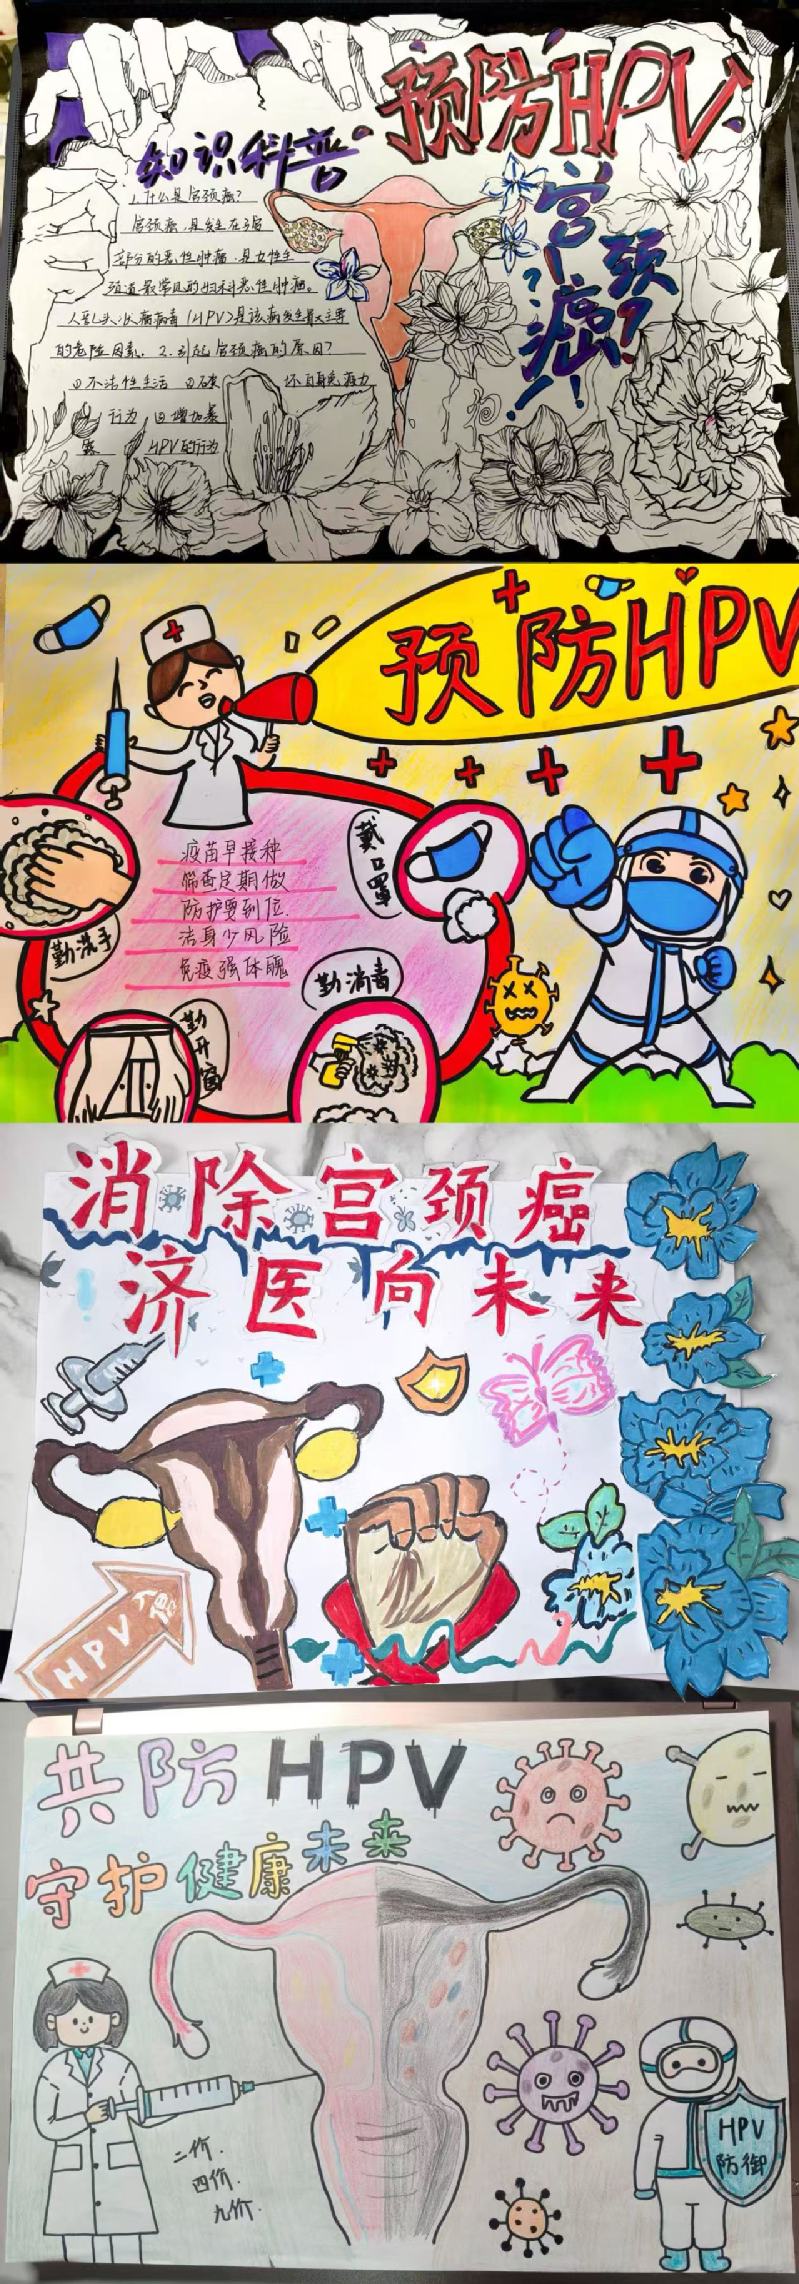 预防HPV
宫颈癌?!!
知识科普
1.什么是宫颈癌?
宫颈癌,是发生在子宫
部分的恶性肿瘤.是女性生
殖道最常见的妇科恶性肿瘤。
人乳头状瘤病毒(HPV)是该病发生最主要
的危险因素. 2.引起宫颈癌的原因?
①不洁性生活 ②破坏自身免疫力
行为 ③增加暴
露 HPV的行为
预防HPV
疫苗早接种
筛查定期做
防护要到位.
洁身少风险
免疫强体魄
戴口罩
勤洗手
勤开窗
勤消毒
消除宫颈癌
济医向未来
HPV
共防HPV
守护健康未来
二价.
四价.
九价.
HPV
防御